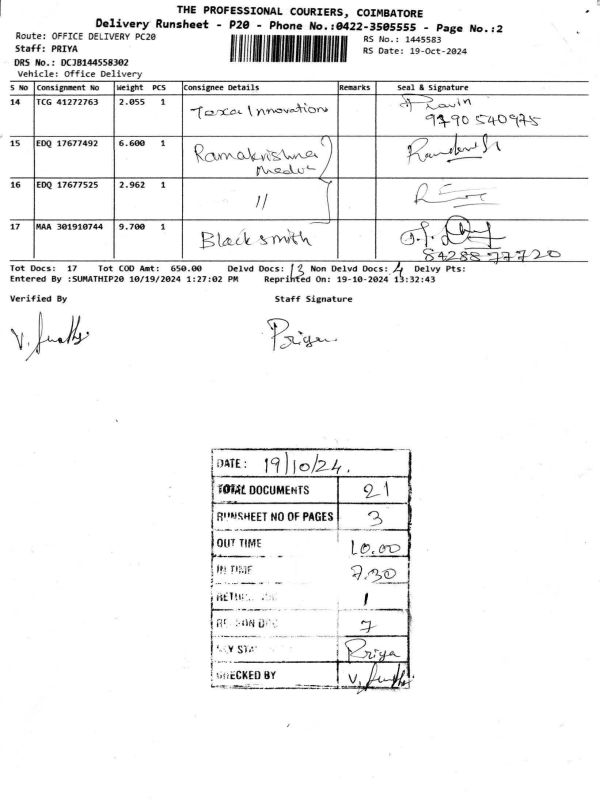 THE PROFESSIONAL COURIERS, COIMBATORE
Delivery Runsheet - P20 - Phone No.:0422-3505555 - Page No.:2
Route: OFFICE DELIVERY PC20
RS No.: 1445583
Staff: PRIYA
RS Date: 19-Oct-2024
DRS No.: DCJB144558302
Vehicle: Office Delivery
S No Consignment No Weight PCS Consignee Details Remarks Seal & Signature
14 TCG 41272763 2.055 1 Texa Innovation Pravin
9790540975
15 EDQ 17677492 6.600 1 Ramakrishna
16 EDQ 17677525 2.962 1 //
17 MAA 301910744 9.700 1 Blacksmith
84288 77720
Tot Docs: 17 Tot COD Amt: 650.00 Delvd Docs: 13 Non Delvd Docs: 4 Delvy Pts:
Entered By :SUMATHIP20 10/19/2024 1:27:02 PM Reprinted On: 19-10-2024 13:32:43
Verified By Staff Signature
Priya
DATE: 19/10/24.
TOTAL DOCUMENTS 21
RUNSHEET NO OF PAGES 3
OUT TIME 10.00
IN TIME 7.30
1
7
Priya
CHECKED BY